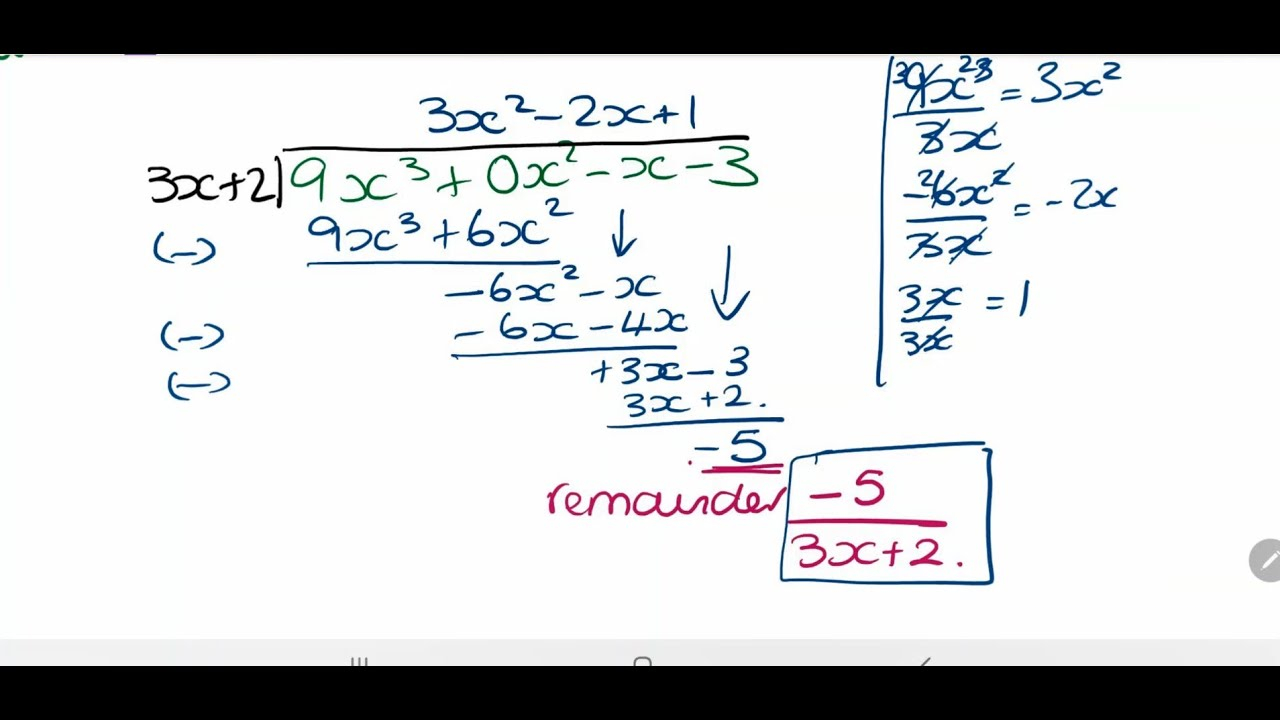 3x² - 2x + 1
3x+2) 9x³ + 0x² - x - 3
(-) 9x³ + 6x²
-6x² - x
(-) -6x - 4x
+3x - 3
(-) 3x + 2.
-5
remainder -5/3x+2.
39x²3/3x = 3x²
-26x²/3x = -2x
3x/3x = 1